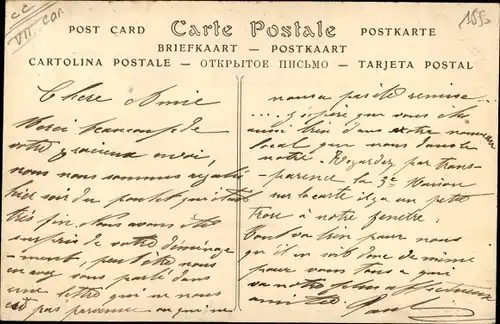 CC
VII. car.
155
POST CARD Carte Postale POSTKARTE
BRIEFKAART — POSTKAART
CARTOLINA POSTALE — ОТКРЫТОЕ ПИСЬМО — TARJETA POSTAL
Chère Amie
Merci beaucoup de
votre gracieux envoi,
nous nous sommes régalés
hier soir du poulet qui était
très fin. Nous avons été
surpris de votre déménage
-ment, peut être nous
en avez vous parlé dans
une lettre qui ne nous
est pas parvenue ou qui ne
nous a pas été remise...
....j'espère que vous êtes
aussi bien dans votre nouveau
local que nous dans le
notre. Regardez par trans-
parence la 3e Maison
sur la carte il y a un petit
trou à notre fenêtre.
Tout va bien pour nous
qu'il en soit donc de même
pour vous tous à qui
va notre plus affectueuse
amitié.